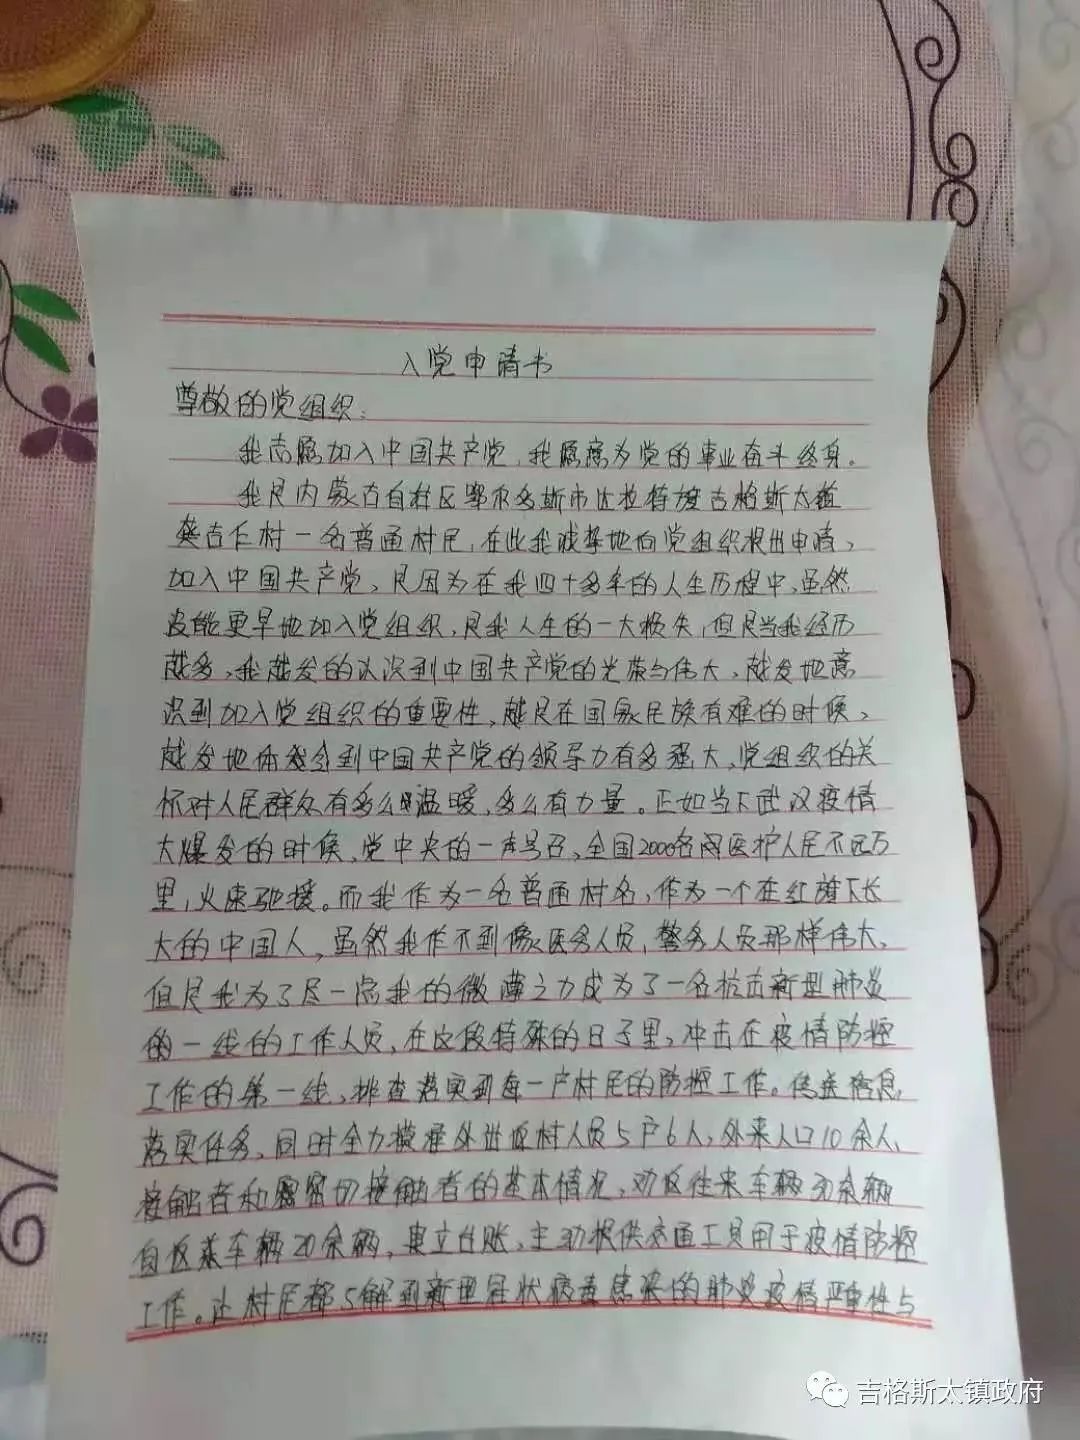 入党申请书
尊敬的党组织:
我志愿加入中国共产党,我愿意为党的事业奋斗终身。
我是内蒙古自治区鄂尔多斯市达拉特旗吉格斯太镇
龚吉仁村一名普通村民,在此我诚挚地向党组织提出申请,
加入中国共产党,是因为在我四十多年的人生历程中,虽然
没能更早地加入党组织,是我人生的一大损失,但是当我经历
越多,我越发的认识到中国共产党的光荣与伟大,越发地意
识到加入党组织的重要性,越是在国家民族有难的时候,
越发地体会到中国共产党的领导力有多强大,党组织的关
怀对人民群众有多么温暖,多么有力量。正如当下武汉疫情
大爆发的时候,党中央的一声号召,全国2000名阅医护人民不远万
里,火速驰援。而我作为一名普通村名,作为一个在红旗下长
大的中国人,虽然我作不到像医务人员,警务人员那样伟大,
但是我为了尽一点我的微薄之力成为了一名抗击新型肺炎
的一线的工作人员,在这段特殊的日子里,冲击在疫情防控
工作的第一线,排查落实到每一户村民的防控工作。传送信息,
落实任务,同时全力摸准外进返村人员5户6人,外来人口10余人,
接触者和密切接触者的基本情况,劝返往来车辆30余辆
自返来车辆20余辆,建立台账,主动提供交通工具用于疫情防控
工作。让村民都了解到新型冠状病毒感染的肺炎疫情严重性与
吉格斯太镇政府